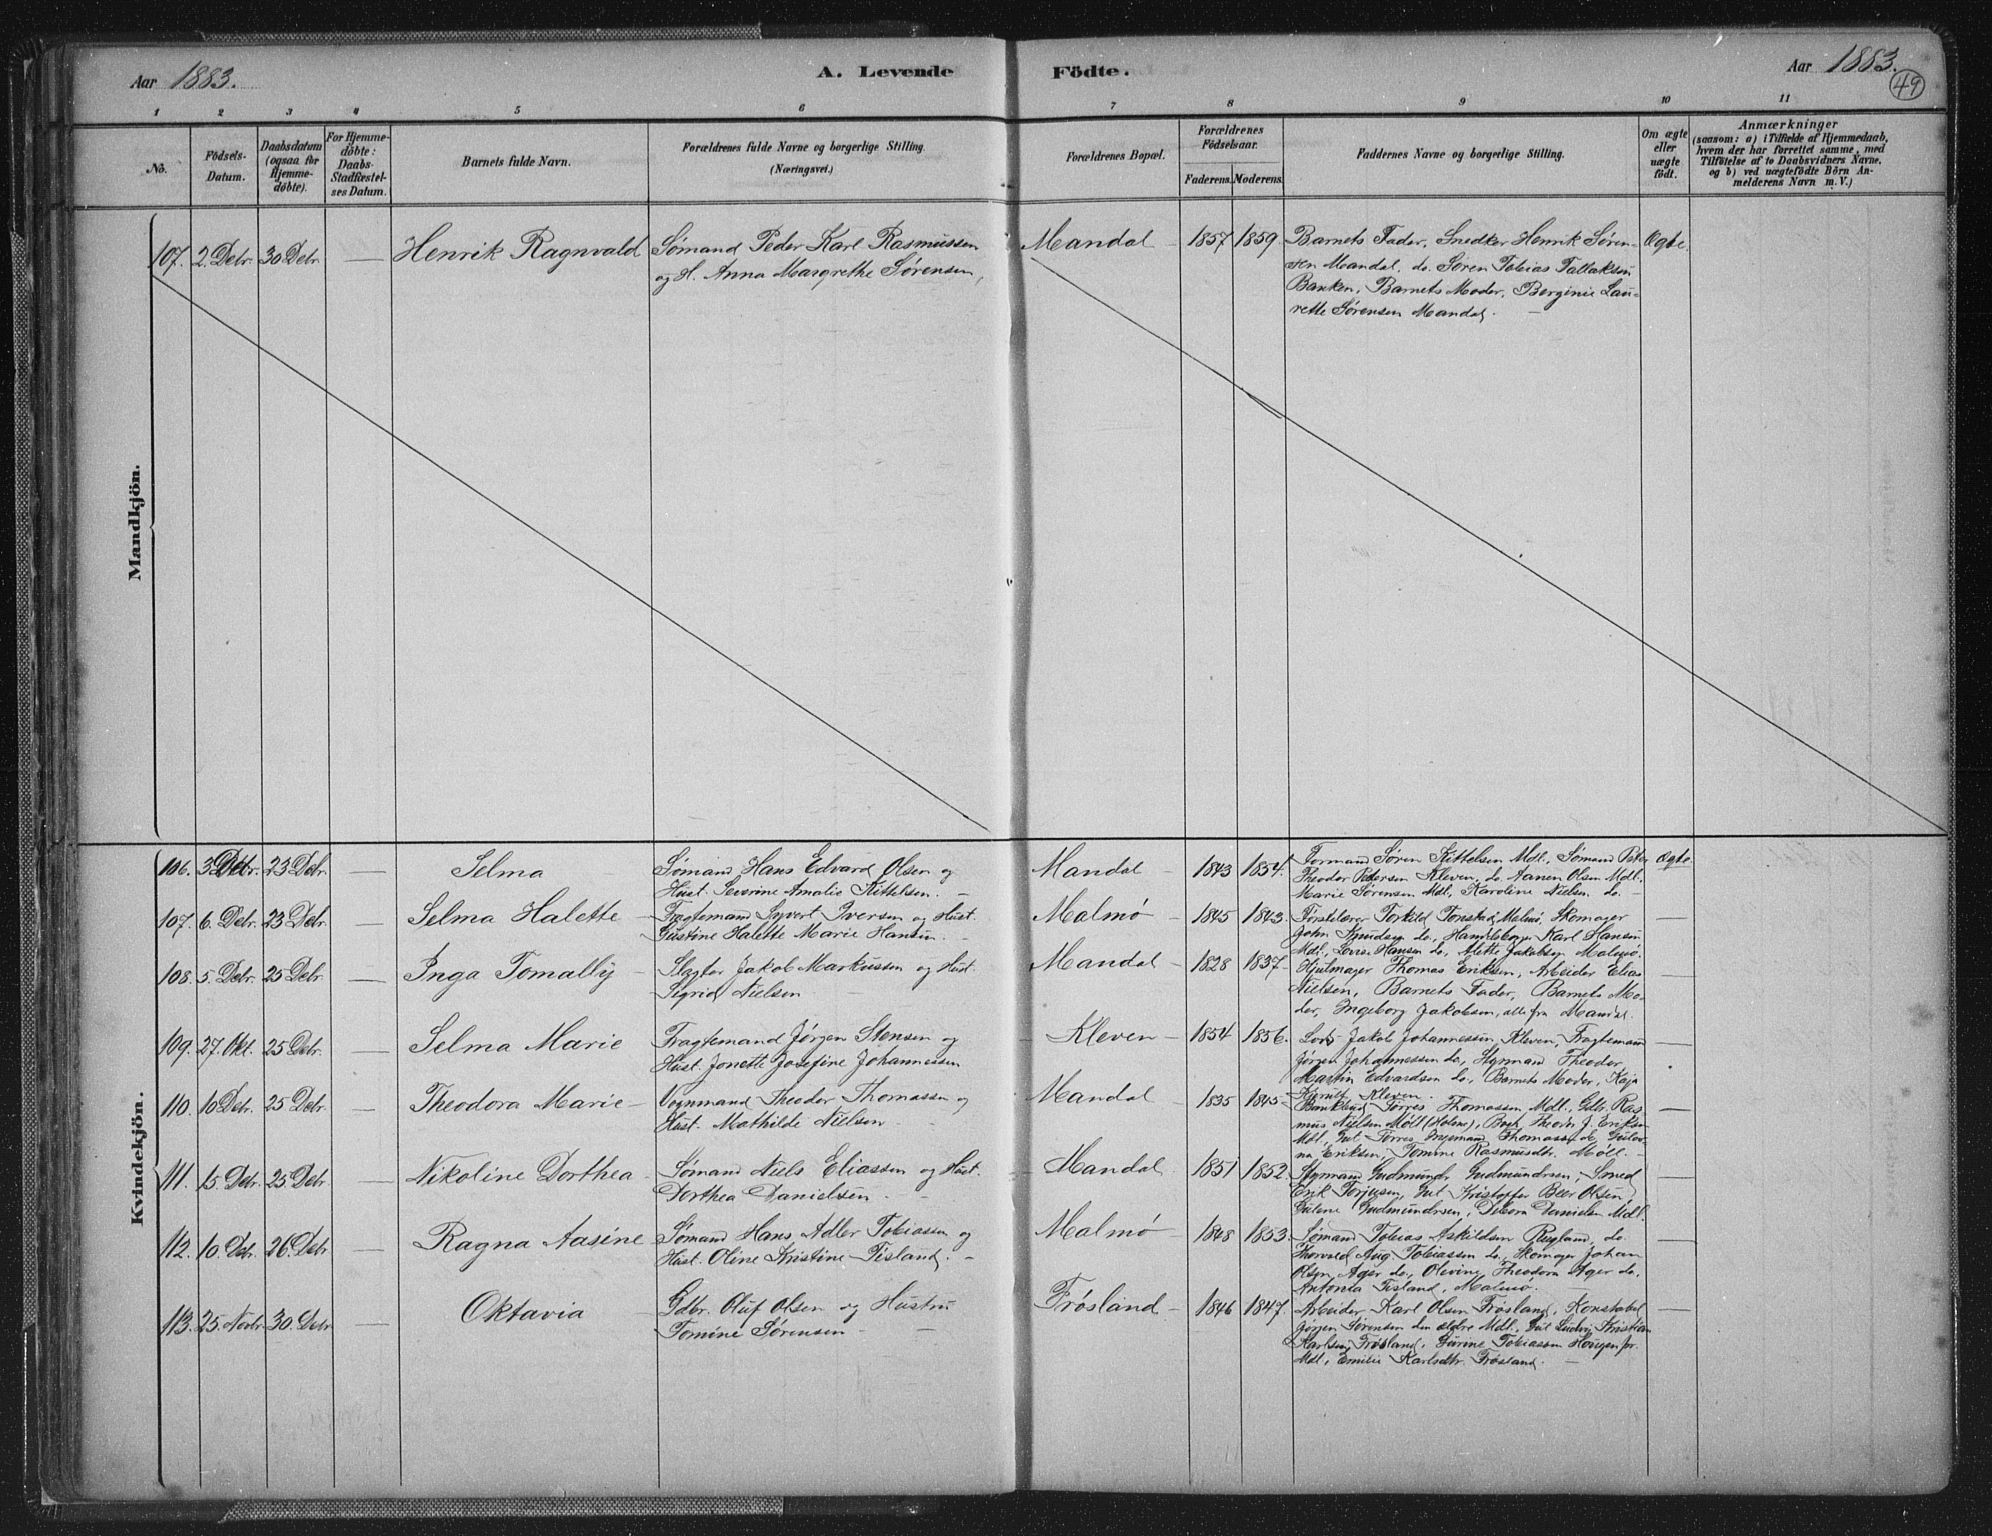 Aar 1883. A. Levende Födte. Aar 1883.
49
1 2 3 4 5 6 7 8 9 10 11
No.
Födsels-Datum.
Daabsdatum (ogsaa for Hjemme-döbte).
For Hjemme-döbte: Daabs-Stadfæstel-ses Datum.
Barnets fulde Navn.
Forældrenes fulde Navne og borgerlige Stilling.
(Næringsvei.)
Forældrenes Bopæl.
Forældrenes Födselsaar.
Faderens. Moderens.
Faddernes Navne og borgerlige Stilling.
Om ægte eller uægte födt.
Anmærkninger
(saasom: a) i Tilfælde af Hjemmedaab,
hvem der har forrettet samme, med
Tilföielse af to Daabsvidners Navne,
og b) ved uægtefödte Börn An-
melderens Navn m. V.)
Mandkjön.
107. 2. Debr. 30 Debr. — Henrik Ragnvald
Sømand Peder Karl Rasmussen
og H. Anna Margrethe Sørensen,
Mandal 1857 1859
Barnets Fader, Snedker Henrik Søren-
sen Mandal, do. Søren Tobias Tallaksen
Banken, Barnets Moder, Berginie Lau-
rette Sørensen Mandal.
Ægte.
Kvindekjön.
106. 3 Debr. 23 Debr. — Selma
Sømand Hans Edvard Olsen og
Hust. Severine Amalie Kittelsen.
Mandal 1843 1854.
Formand Søren Kittelsen Mdl., Sømand Peter
Theodor Petersen Kleven, do. Aanen Olsen Mdl.
Marie Sørensen Mdl, Karoline Nielsen do.
Ægte.
107. 6. Debr. 23 Debr. — Selma Halette
Fragtemand Syvert Iversen og Hust.
Gustine Halette Marie Hansen.
Malmø 1845 1843. —
Torkild Tonstad Malmø Skomager
John Knudsen do., Karl Hansen
Mdl., Hansen do., Alette Jakobsen Malmø.
108. 5. Debr. 25 Debr. — Inga Tomally
Slagter Jakob Markussen og Hust.
Sigrid Nielsen
Mandal 1828 1837. —
Hjulmager Thomas Eriksen, Arbeider Elias
Nielsen, Barnets Fader, Barnets Mo-
der, Ingeborg Jakobsen, alle fra Mandal.
109. 27. Okt. 25 Debr. — Selma Marie
Fragtemand Jørgen Stensen og
Hust. Jonette Josefine Johannessen
Kleven 1854 1856. —
Lods Jakob Johannessen Kleven, Fragtemand
Jørgen Johannessen do., Styrmand Theodor
Martin Edvardsen do., Barnets Moder, Kaja
Kleven.
110. 10 Debr. 25 Debr. — Theodora Marie
Vognmand Theodor Thomassen og
Hust. Mathilde Nielsen
Mandal 1835 1845. —
Torres Thomassen Mdl., Gdbr. Ras-
mus Nielsen Møll (Holme), Theodr J. Eriksen
Mdl, Gut Torres Ingemand Thomassen do, Gusta-
va Eriksen, Tomine Rasmusdtr. Möll.
111. 15. Debr. 25 Debr. — Nikoline Dorthea
Sømand Niels Eliassen og Hust.
Dorthea Danielsen.
Mandal 1851 1852. —
Styrmand Gudmund Gudmundsen, Smed
Erik Torjussen, Gut Kristoffer Beer Olsen,
Gudmundsen, Debora Danielsen Mdl.
112. 10. Debr. 26 Debr. — Ragna Aasine
Sømand Hans Adler Tobiassen og
Hust. Oline Kristine Fisland.
Malmø 1848 1853. —
Sømand Tobias Askildsen Rugland, do.
Thorvald Aug Tobiassen do., Skomager Johan
Olsen Ager do., Olevine Theodora Ager do.
Antonia Fisland, Malmø.
113. 25. Novbr. 30. Debr. — Oktavia
Gdbr. Oluf Olsen og Hustru
Tomine Sørensen
Frøsland 1846 1847. —
Arbeider Karl Olsen Frøsland, Konstabel
Jørgen Sørensen den ældre Mdl., Gut Ludvig Kristian
Karlsen Frøsland, Gurine Tobiassen
Mdl, Emilie Karlsdtr. Frøsland.